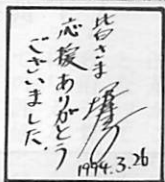 皆さま
応援ありがとう
ございました。
1994.3.26